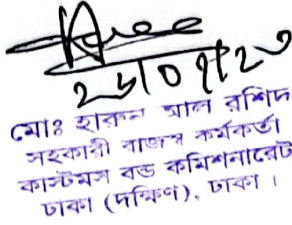 ২৬/০৭/২৩
মোঃ হারুন আল রশিদ
সহকারী রাজস্ব কর্মকর্তা
কাস্টমস বন্ড কমিশনারেট
ঢাকা (দক্ষিণ), ঢাকা ।